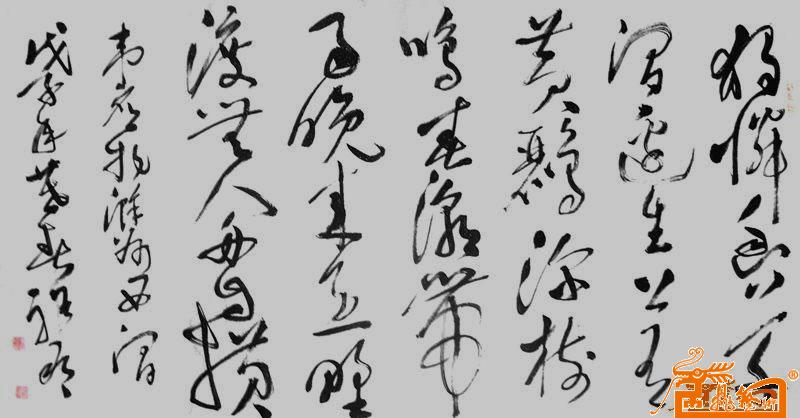 獨憐幽草
澗邊生上有
黃鸝深樹
鳴春潮帶
雨晚來急野
渡無人舟自橫
韋應物滁州西澗
戊子年暮春